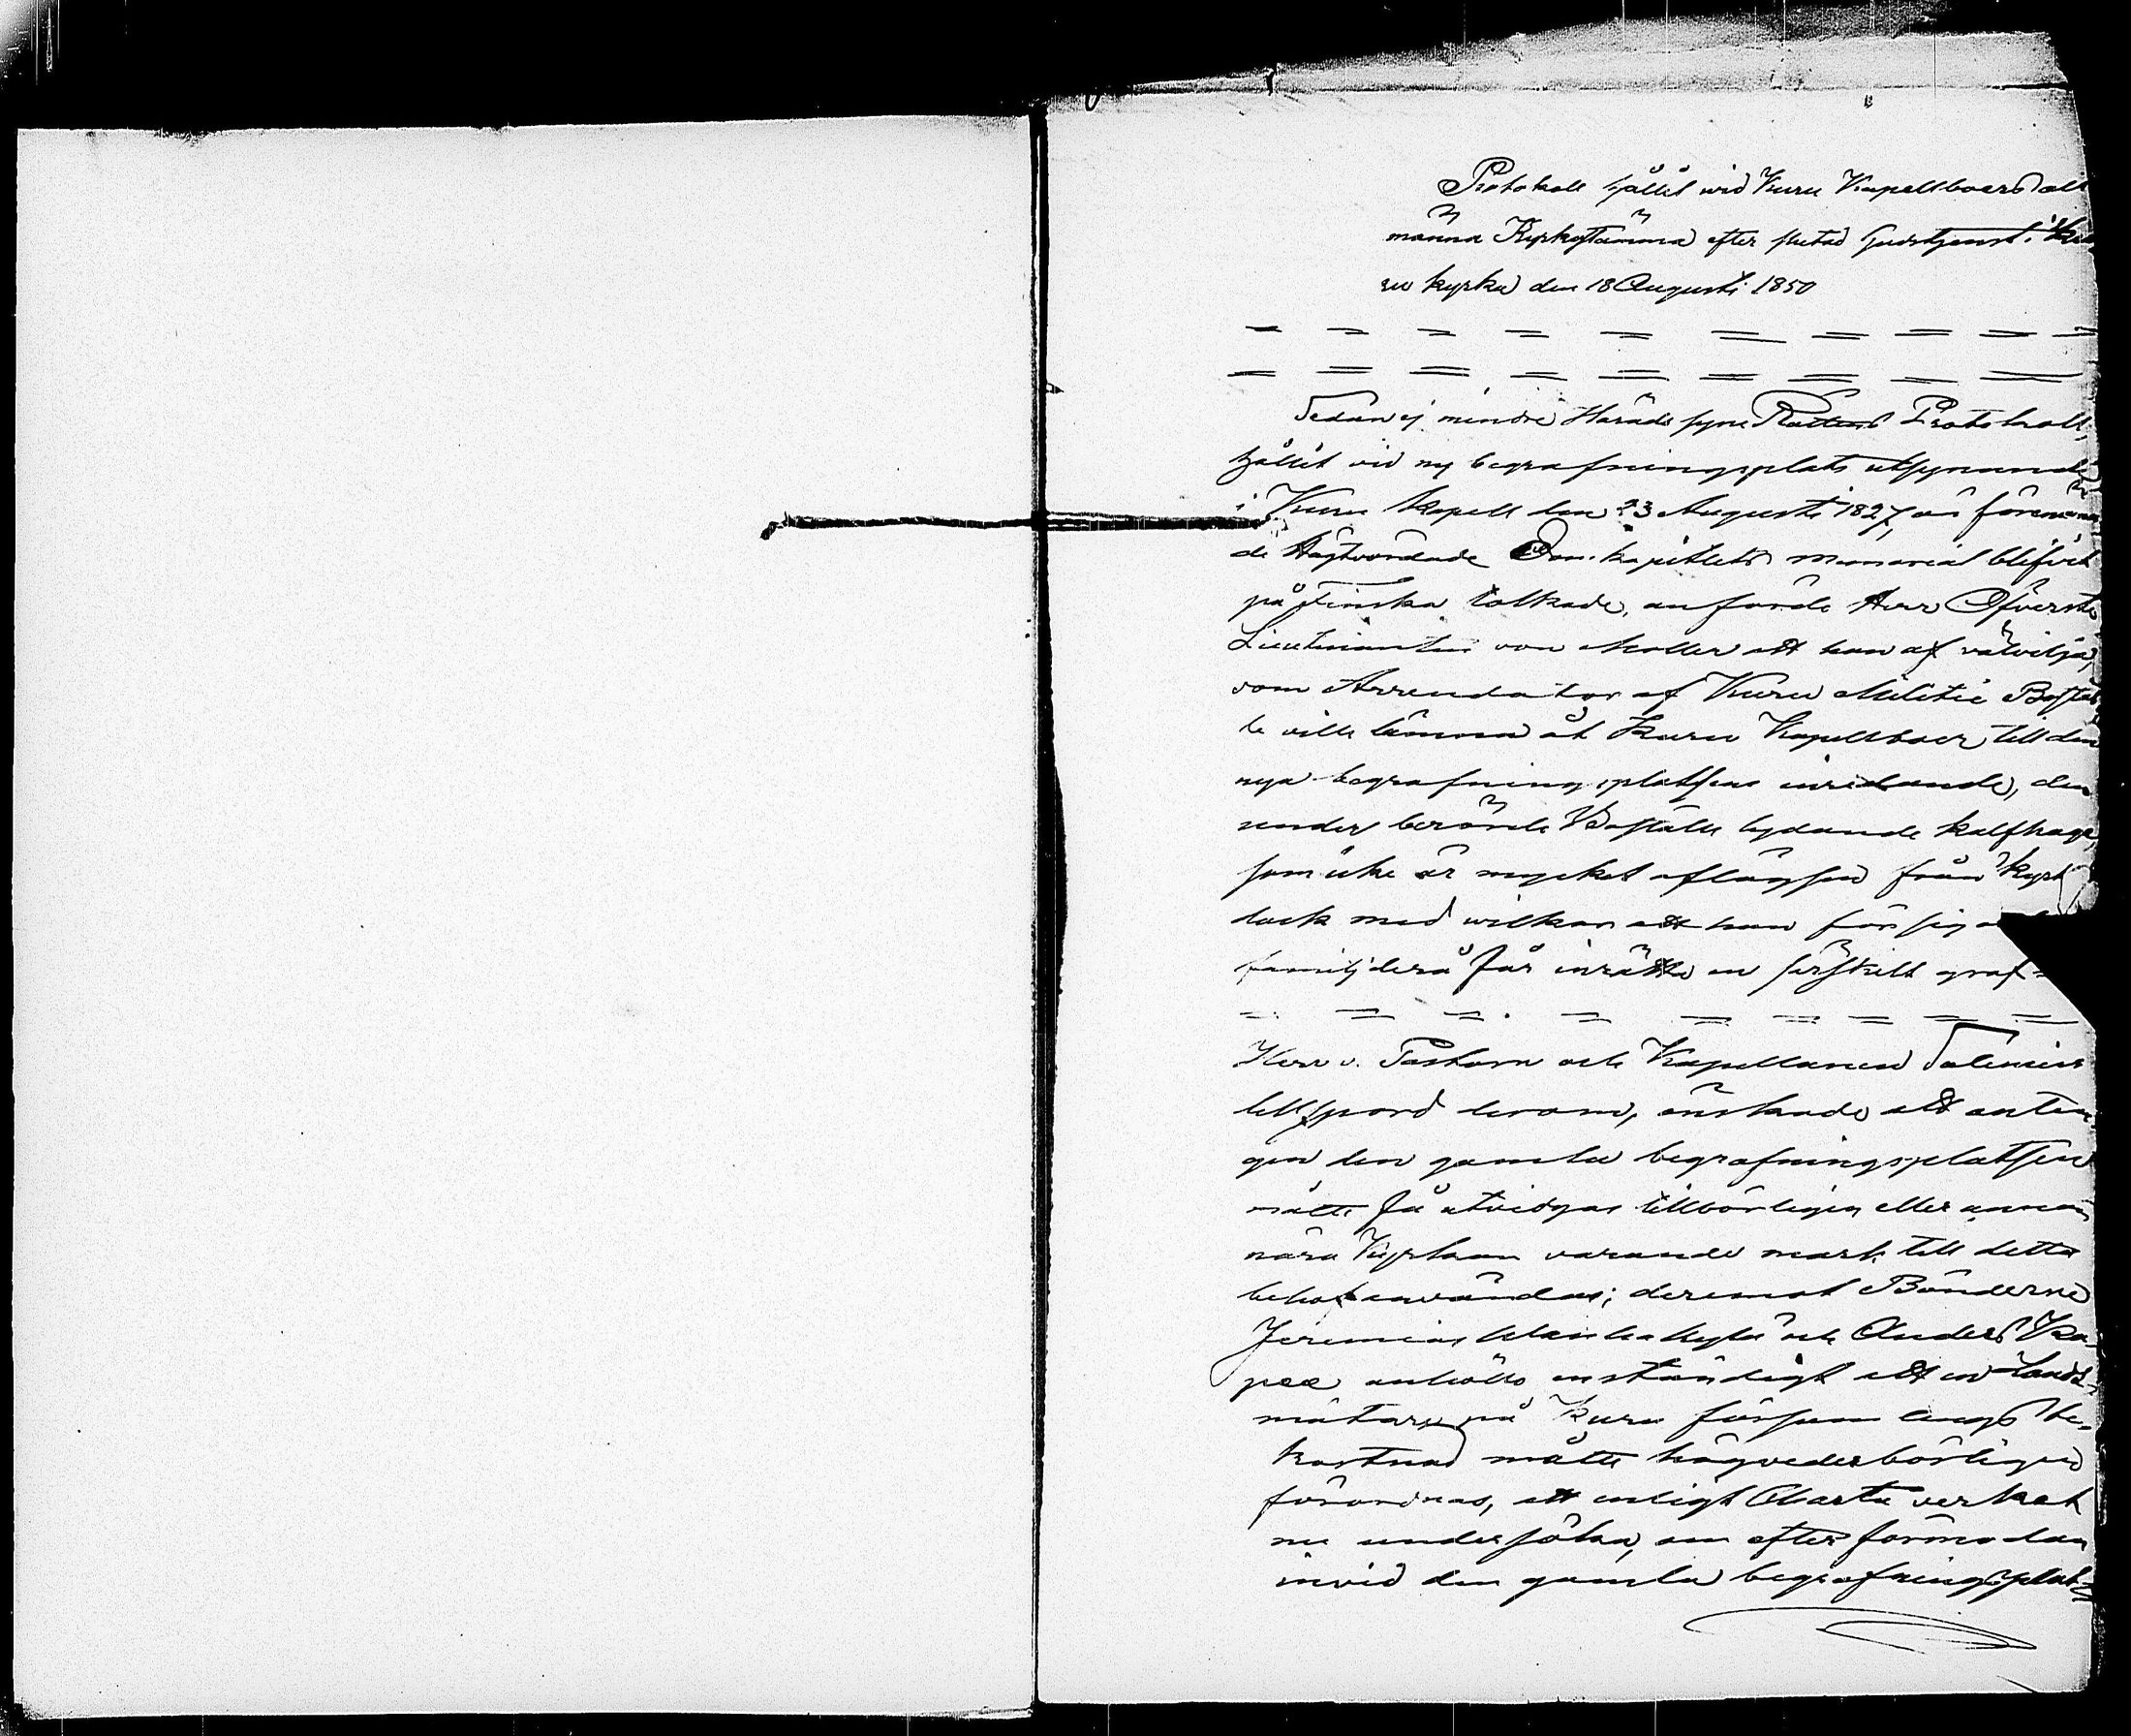 Protokoll hållit wid Kuru Kapellboers all
männa Kyrkostämma efter slutad Gudstjenst i Ku
ru kyrka den 18 Augusti 1850
Sedan ej mindre Härads syne Rättens Protokoll,
hållit vid ny begrafningsplats utsynande
i Kuru Kapell den 23 Augusti 1827, än förenämn
de Högtvördade Domkapitlets memorial blifvit
på finska tolkade, anförde Herr Öfverste
Lieutnanten von Moller att han af välvilja,
som Arrendator af Kuru Militie Boställ
le ville lämna åt Kuru Kapellboer till den
nya begrafningsplatsens inredande, den
under berörde Boställe lydande kalfhage,
som icke är mycket aflägsen från kyrk
dock med wilkor att han för sig
familj derå får inrätta en särskilt graf
Herr v. Pastorn och Kapellanen Salenius
tillspord herom, önskade att anten
gen den gamla begrafningsplatsen
måtte få utvidgas tillbörligen eller annan
nära Kyrkan varande mark till detta
behof användas; deremot Bönderne
Jeremias och Anders Ka-
pee anhöllo enständigt att en Landt-
mätare på Kuru församlings be-
kostnad måtte högvederbörligen
förordnas, att enligt Charta verket
nu undersöka, om efter förmodan
invid den gamla begrafningsplat-